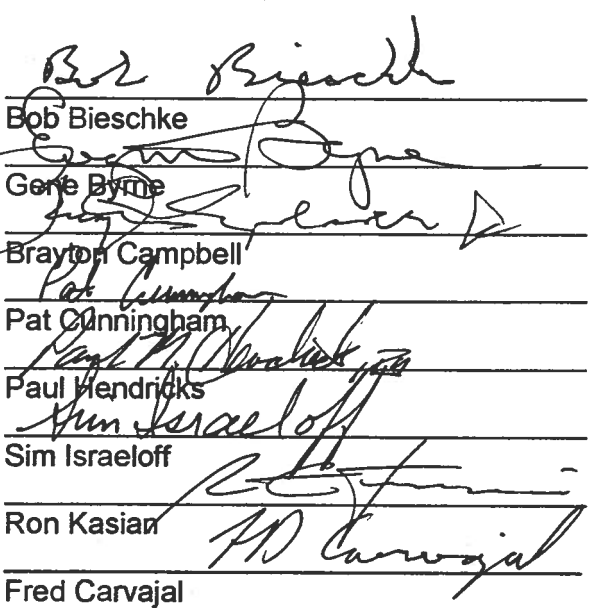 Bob Bieschke
Bob Bieschke
Gene Byrne
Gene Byrne
Brayton Campbell
Pat Cunningham
Pat Cunningham
Paul Hendricks
Sim Israeloff
Sim Israeloff
Ron Kasian
FD Carvajal
Fred Carvajal